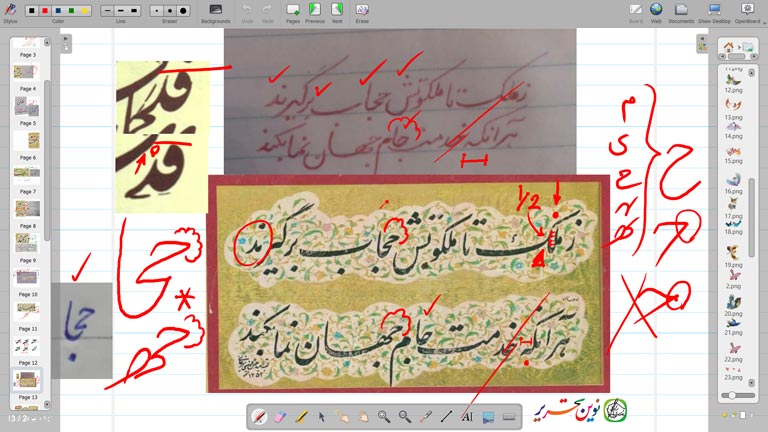 Stylus Color Line Eraser Backgrounds Undo Redo Pages Previous Next Erase Board Web Documents Show Desktop OpenBoard
Page 3
Page 4
Page 5
Page 6
Page 7
Page 8
Page 9
Page 10
Page 11
Page 12
Page 13
ز ملک تا ملکوتش حجاب برگیرند
هرآنکه خدمت جام جهان نما بکند
1/2
ز ملک تا ملکوتش حجاب برگیرند
هرآنکه خدمت جام جهان نما بکند
حجا
حجا
م
ی
ح
ح
نوین تحریر
12.png
13.png
14.png
15.png
16.png
17.png
18.png
19.png
2.png
20.png
21.png
22.png
23.png